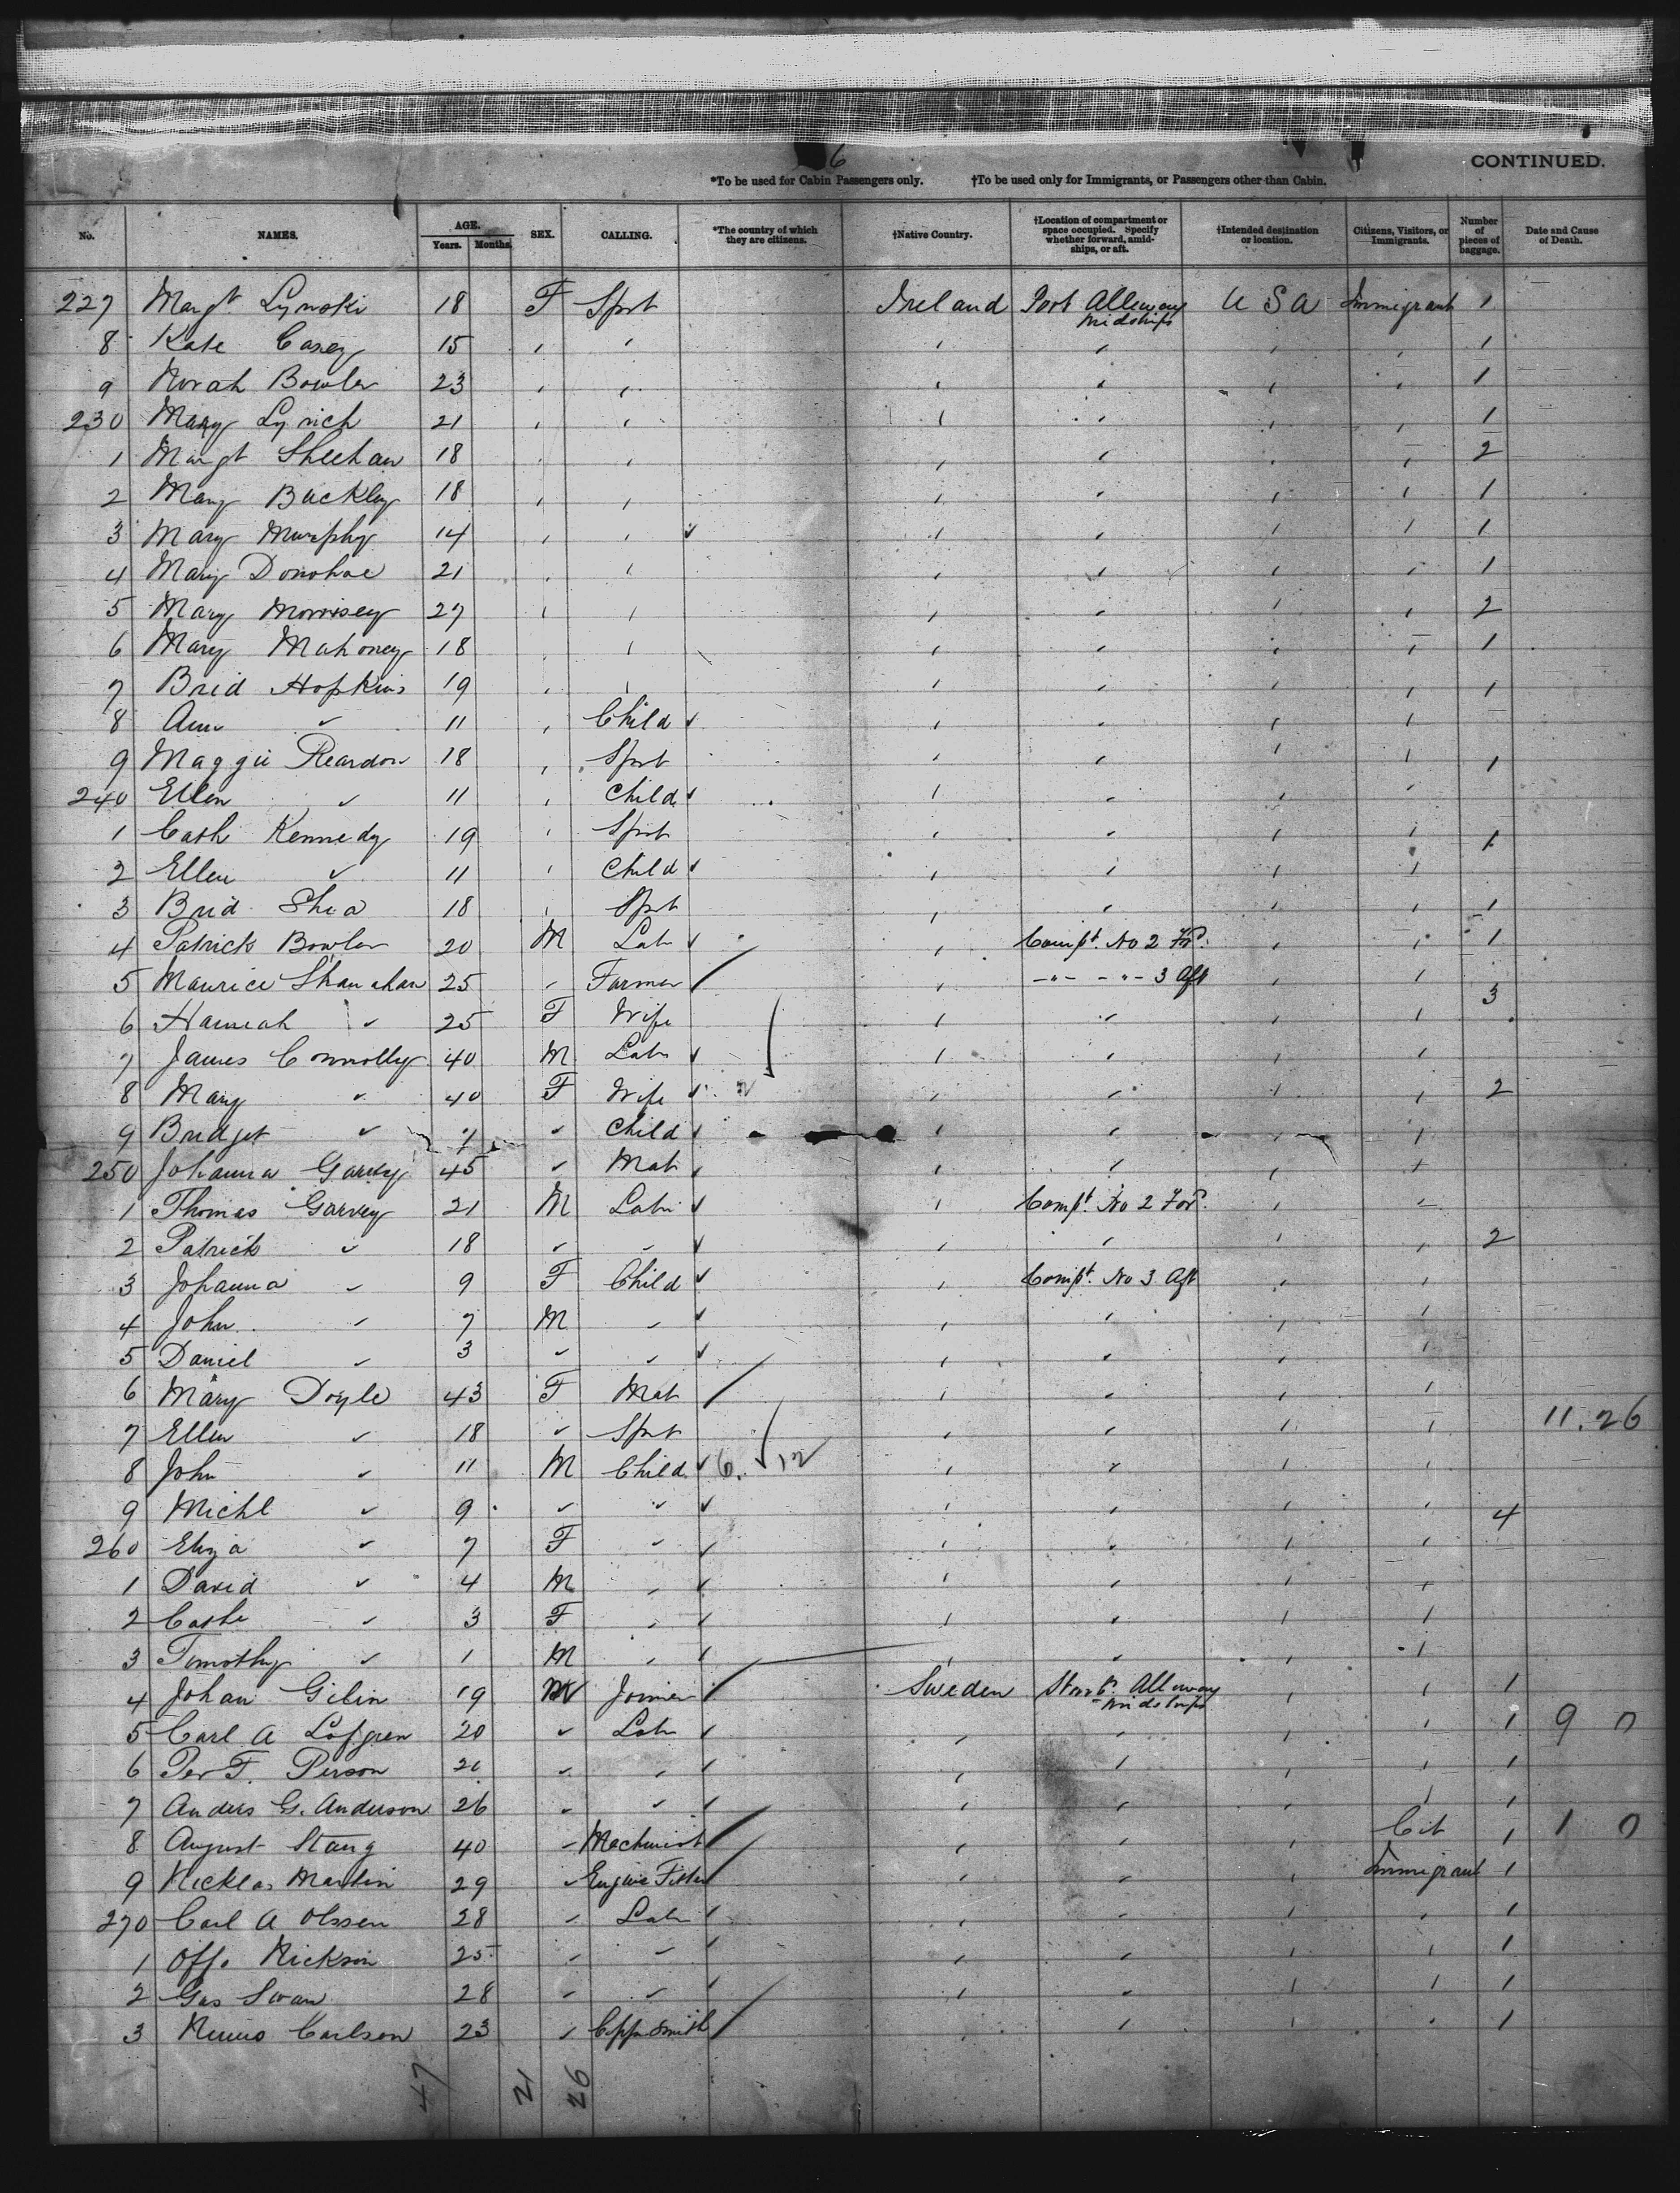 6
CONTINUED.
*To be used for Cabin Passengers only. †To be used only for Immigrants, or Passengers other than Cabin.
No. NAMES. AGE. Years. Months. SEX. CALLING. *The country of which they are citizens. †Native Country. †Location of compartment or space occupied. Specify whether forward, amidships, or aft. †Intended destination or location. Citizens, Visitors, or Immigrants. Number of pieces of baggage. Date and Cause of Death.
227 Margt 18 F Spst Ireland Port Alleway Midships U S A Immigrant 1
8 Kate Casey 15 " " " " " " 1
9 Norah Bowler 23 " " " " " " 1
230 Mary Lynch 21 " " " " " " 1
1 Margt Sheehan 18 " " " " " " 2
2 Mary Buckley 18 " " " " " " 1
3 Mary Murphy 14 " " " " " " 1
4 Mary Donohoe 21 " " " " " " 1
5 Mary Morrisey 27 " " " " " " 2
6 Mary Mahoney 18 " " " " " " 1
7 Brid Hopkins 19 " " " " " " 1
8 Ann " 11 " Child " " " "
9 Maggie Reardon 18 " Spst " " " " 1
240 Ellen " 11 " Child " " " "
1 Cath Kennedy 19 " Spst " " " " 1
2 Ellen " 11 " Child " " " "
3 Brid Shea 18 " Spst " " " " 1
4 Patrick Bowler 20 M Labr " Compt. No 2 Fd. " " 1
5 Maurice Shanahan 25 " Farmer " -"- -"- 3 Aft " "
6 Hannah " 25 F Wife " " " " 3
7 James Connolly 40 M Labr " " " "
8 Mary " 40 F Wife " " " " 2
9 Bridget " 7 " Child " " " "
250 Johanna Garvey 45 " Mat " " " "
1 Thomas Garvey 21 M Labr " Compt. No 2 Ford. " "
2 Patrick " 18 " " " " " " 2
3 Johanna " 9 F Child " Compt. No 3 Aft " "
4 John " 7 M " " " " "
5 Daniel " 3 " " " " " "
6 Mary Doyle 43 F Mat " " " "
7 Ellen " 18 " Spst " " " " 11.26
8 John " 11 M Child 6. 12 " " " "
9 Michl " 9 " " " " " " 4
260 Eliza " 7 F " " " " "
1 David " 4 M " " " " "
2 Cathe " 3 F " " " " "
3 Timothy " 1 M " " " " "
4 Johan Gilin 19 M Joiner Sweden Starbd. Alleway Midships " " 1
5 Carl A Lofgren 20 " Labr " " " " 1 9 0
6 Per F. Person 20 " " " " " " 1
7 Anders G. Anderson 26 " " " " " " 1
8 August Stang 40 " Machinist " " " Cit 1 1 0
9 Nicklas Martin 29 " Engine Fitter " " " Immigrant 1
270 Carl A Olssen 28 " Labr " " " " 1
1 Nickson 25 " " " " " " 1
2 Gus Swan 28 " " " " " " 1
3 Carlson 23 " Coppersmith " " " " 1
47 21 26